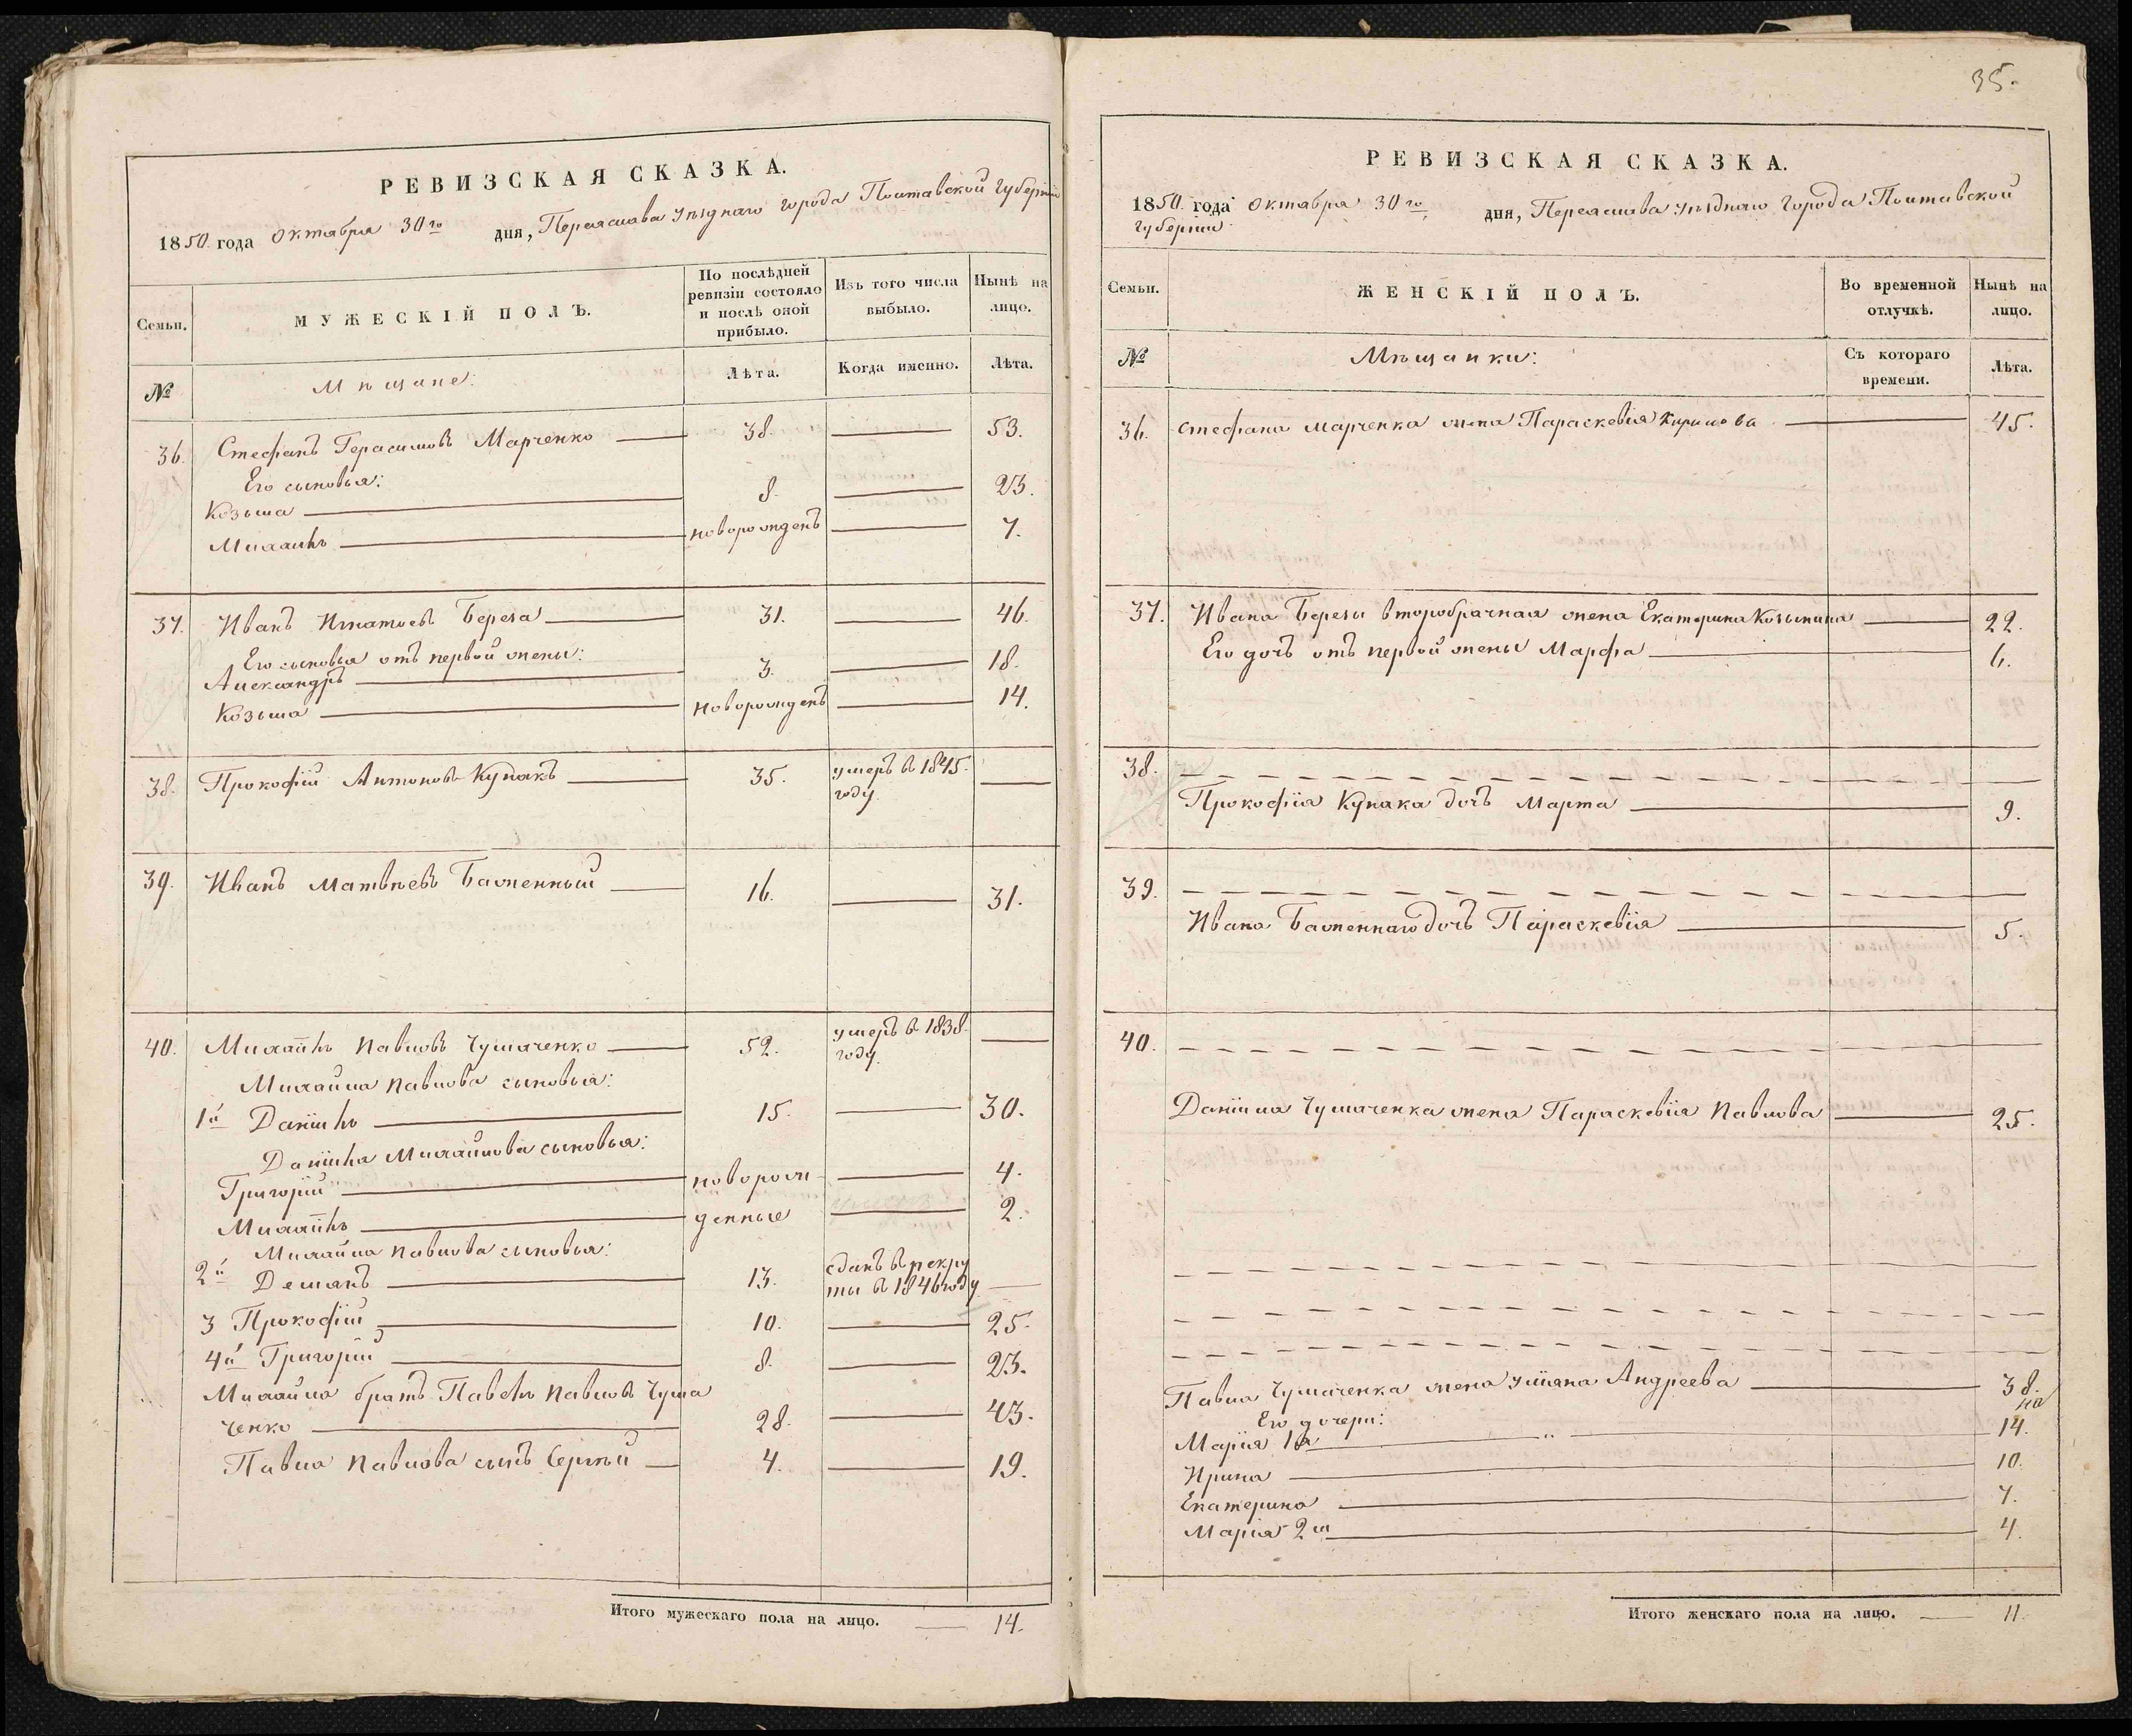 РЕВИЗСКАЯ СКАЗКА.
1850 года октября 30го дня, Переяслава уѣзднаго города Полтавской губерніи
Семьи.
МУЖЕСКІЙ ПОЛЪ.
По послѣдней ревизіи состояло и послѣ оной прибыло.
Изъ того числа выбыло.
Нынѣ на лицо.
№
Мѣщане:
Лѣта.
Когда именно.
Лѣта.
36. Стефанъ Герасимовъ Марченко 38. 53.
Его сыновья:
Козьма 8. 23.
Михаилъ новорожденъ 7.
37. Иванъ Игнатьевъ Береза 31. 46.
Его сыновья отъ первой жены:
Александръ 3. 18.
Козьма новорожденъ 14.
38. Прокофій Антоновъ Кулакъ 35. умеръ въ 1845.
году.
39. Иванъ Матвѣевъ Баженный 16. 31.
40. Михаилъ Павловъ Чумаченко 52. умеръ въ 1838.
году.
Михаила Павлова сыновья:
1й Даніилъ 15. 30.
Даніила Михайлова сыновья:
Григорій новорож 4.
Михаилъ денные 2.
Михаила Павлова сыновья:
2й Демянъ 13. сданъ въ рекру
ты въ 1846 году
3 Прокофій 10. 25.
4й Григорій 8. 23.
Михаила братъ Павелъ Павловъ Чума
ченко 28. 43.
Павла Павлова сынъ Сергѣй 4. 19.
Итого мужескаго пола на лицо. 14.
35.
РЕВИЗСКАЯ СКАЗКА.
1850 года октября 30го дня, Переяслава уѣзднаго города Полтавской
губерніи
Семьи.
ЖЕНСКІЙ ПОЛЪ.
Во временной отлучкѣ.
Нынѣ на лицо.
№
Мѣщанки:
Съ котораго времени.
Лѣта.
36. Стефана Марченка жена Параскевія Кирилова 45.
37. Ивана Березы второбрачная жена Екатерина Козьмина 22.
Его дочь отъ первой жены Марфа 6.
38.
Прокофія Кулака дочь Марта 9.
39.
Ивана Баженнаго дочь Параскевія 5.
40.
Даніила Чумаченка жена Параскевія Павлова 25.
Павла Чумаченка жена Уліяна Андреева 38.
Его дочери:
Марія 1я 14.
Ирина 10.
Екатерина 7.
Марія 2я 4.
Итого женскаго пола на лицо. 11.